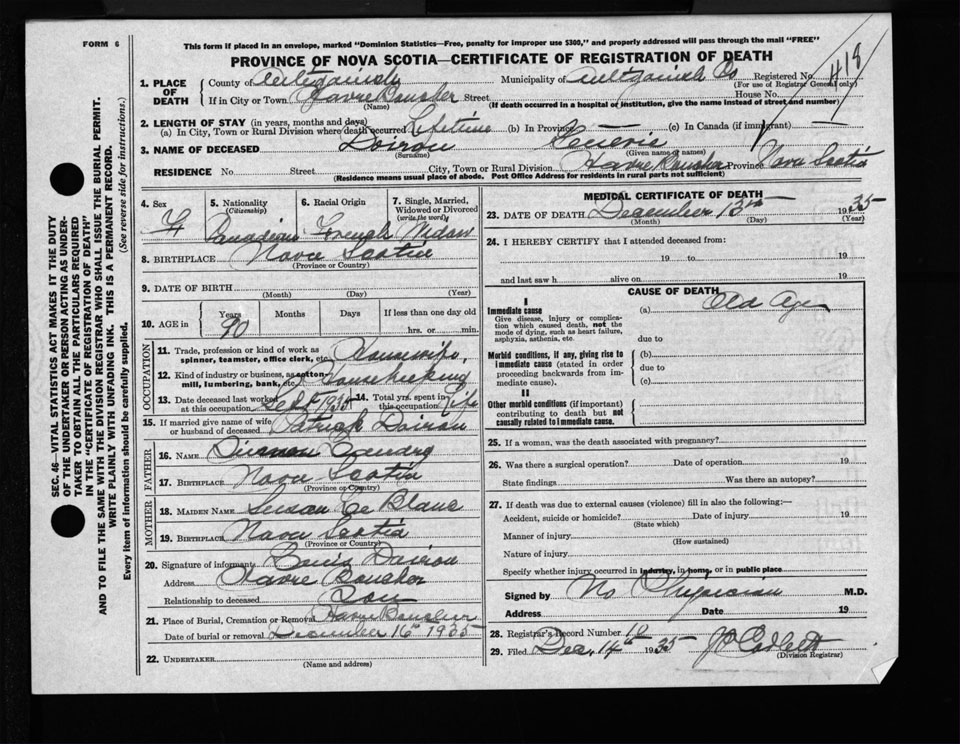 FORM 6
This form if placed in an envelope, marked "Dominion Statistics—Free, penalty for improper use $300," and properly addressed will pass through the mail "FREE"
PROVINCE OF NOVA SCOTIA—CERTIFICATE OF REGISTRATION OF DEATH
418
1. PLACE OF DEATH
County of Antigonish Municipality of Antigonish Co Registered No.
(For use of Registrar General only)
If in City or Town Havre Boucher Street House No.
(Month) (If death occurred in a hospital or institution, give the name instead of street and number)
2. LENGTH OF STAY (in years, months and days)
(a) In City, Town or Rural Division where death occurred Lifetime (b) In Province (c) In Canada (if immigrant)
3. NAME OF DECEASED Doiron
(Surname) (Given name or names)
RESIDENCE No. Street City, Town or Rural Division Havre Boucher Province Nova Scotia
(Residence means usual place of abode. Post Office Address for residents in rural parts not sufficient)
SEC. 46—VITAL STATISTICS ACT MAKES IT THE DUTY
OF THE UNDERTAKER OR PERSON ACTING AS UNDER-
TAKER TO OBTAIN ALL THE PARTICULARS REQUIRED
IN THE "CERTIFICATE OF REGISTRATION OF DEATH"
AND TO FILE THE SAME WITH THE DIVISION REGISTRAR WHO SHALL ISSUE THE BURIAL PERMIT.
WRITE PLAINLY WITH UNFADING INK. THIS IS A PERMANENT RECORD.
Every item of information should be carefully supplied. (See reverse side for instructions.)
4. Sex
F
5. Nationality
(Citizenship)
Canadian
6. Racial Origin
French
7. Single, Married,
Widowed or Divorced
(write the word)
Widow
8. BIRTHPLACE Nova Scotia
(Province or Country)
9. DATE OF BIRTH
(Month) (Day) (Year)
10. AGE in
Years Months Days If less than one day old
90 hrs. or min.
OCCUPATION
11. Trade, profession or kind of work as
spinner, teamster, office clerk, etc. Housewife,
12. Kind of industry or business, as cotton-
mill, lumbering, bank, etc. Housekeeping
13. Date deceased last worked
at this occupation Sept 1935
14. Total yrs. spent in
this occupation Life
15. If married give name of wife
or husband of deceased Patrick Doiron
FATHER
16. NAME
17. BIRTHPLACE Nova Scotia
(Province or Country)
MOTHER
18. MAIDEN NAME Susan Le Blanc
19. BIRTHPLACE Nova Scotia
(Province or Country)
20. Signature of informant Louis Doiron
Address Havre Boucher
Relationship to deceased Son
21. Place of Burial, Cremation or Removal Havre Boucher
Date of burial or removal December 16th 1935
22. UNDERTAKER
(Name and address)
MEDICAL CERTIFICATE OF DEATH
23. DATE OF DEATH December 13th 1935
(Month) (Day) (Year)
24. I HEREBY CERTIFY that I attended deceased from:
19 to 19
and last saw h alive on 19
CAUSE OF DEATH
I
Immediate cause
Give disease, injury or complica-
tion which caused death, not the
mode of dying, such as heart failure,
asphyxia, asthenia, etc.
(a) Old Age
due to
Morbid conditions, if any, giving rise to
immediate cause (stated in order
proceeding backwards from im-
mediate cause).
(b)
due to
(c)
II
Other morbid conditions (if important)
contributing to death but not
causally related to immediate cause.
25. If a woman, was the death associated with pregnancy?
26. Was there a surgical operation? Date of operation 19
State findings Was there an autopsy?
27. If death was due to external causes (violence) fill in also the following:—
Accident, suicide or homicide? Date of injury 19
(State which)
Manner of injury
(How sustained)
Nature of injury
Specify whether injury occurred in industry, in home, or in public place
Signed by No Physician M.D.
Address Date 19
28. Registrar's Record Number 10
29. Filed Dec. 14th 1935
(Division Registrar)